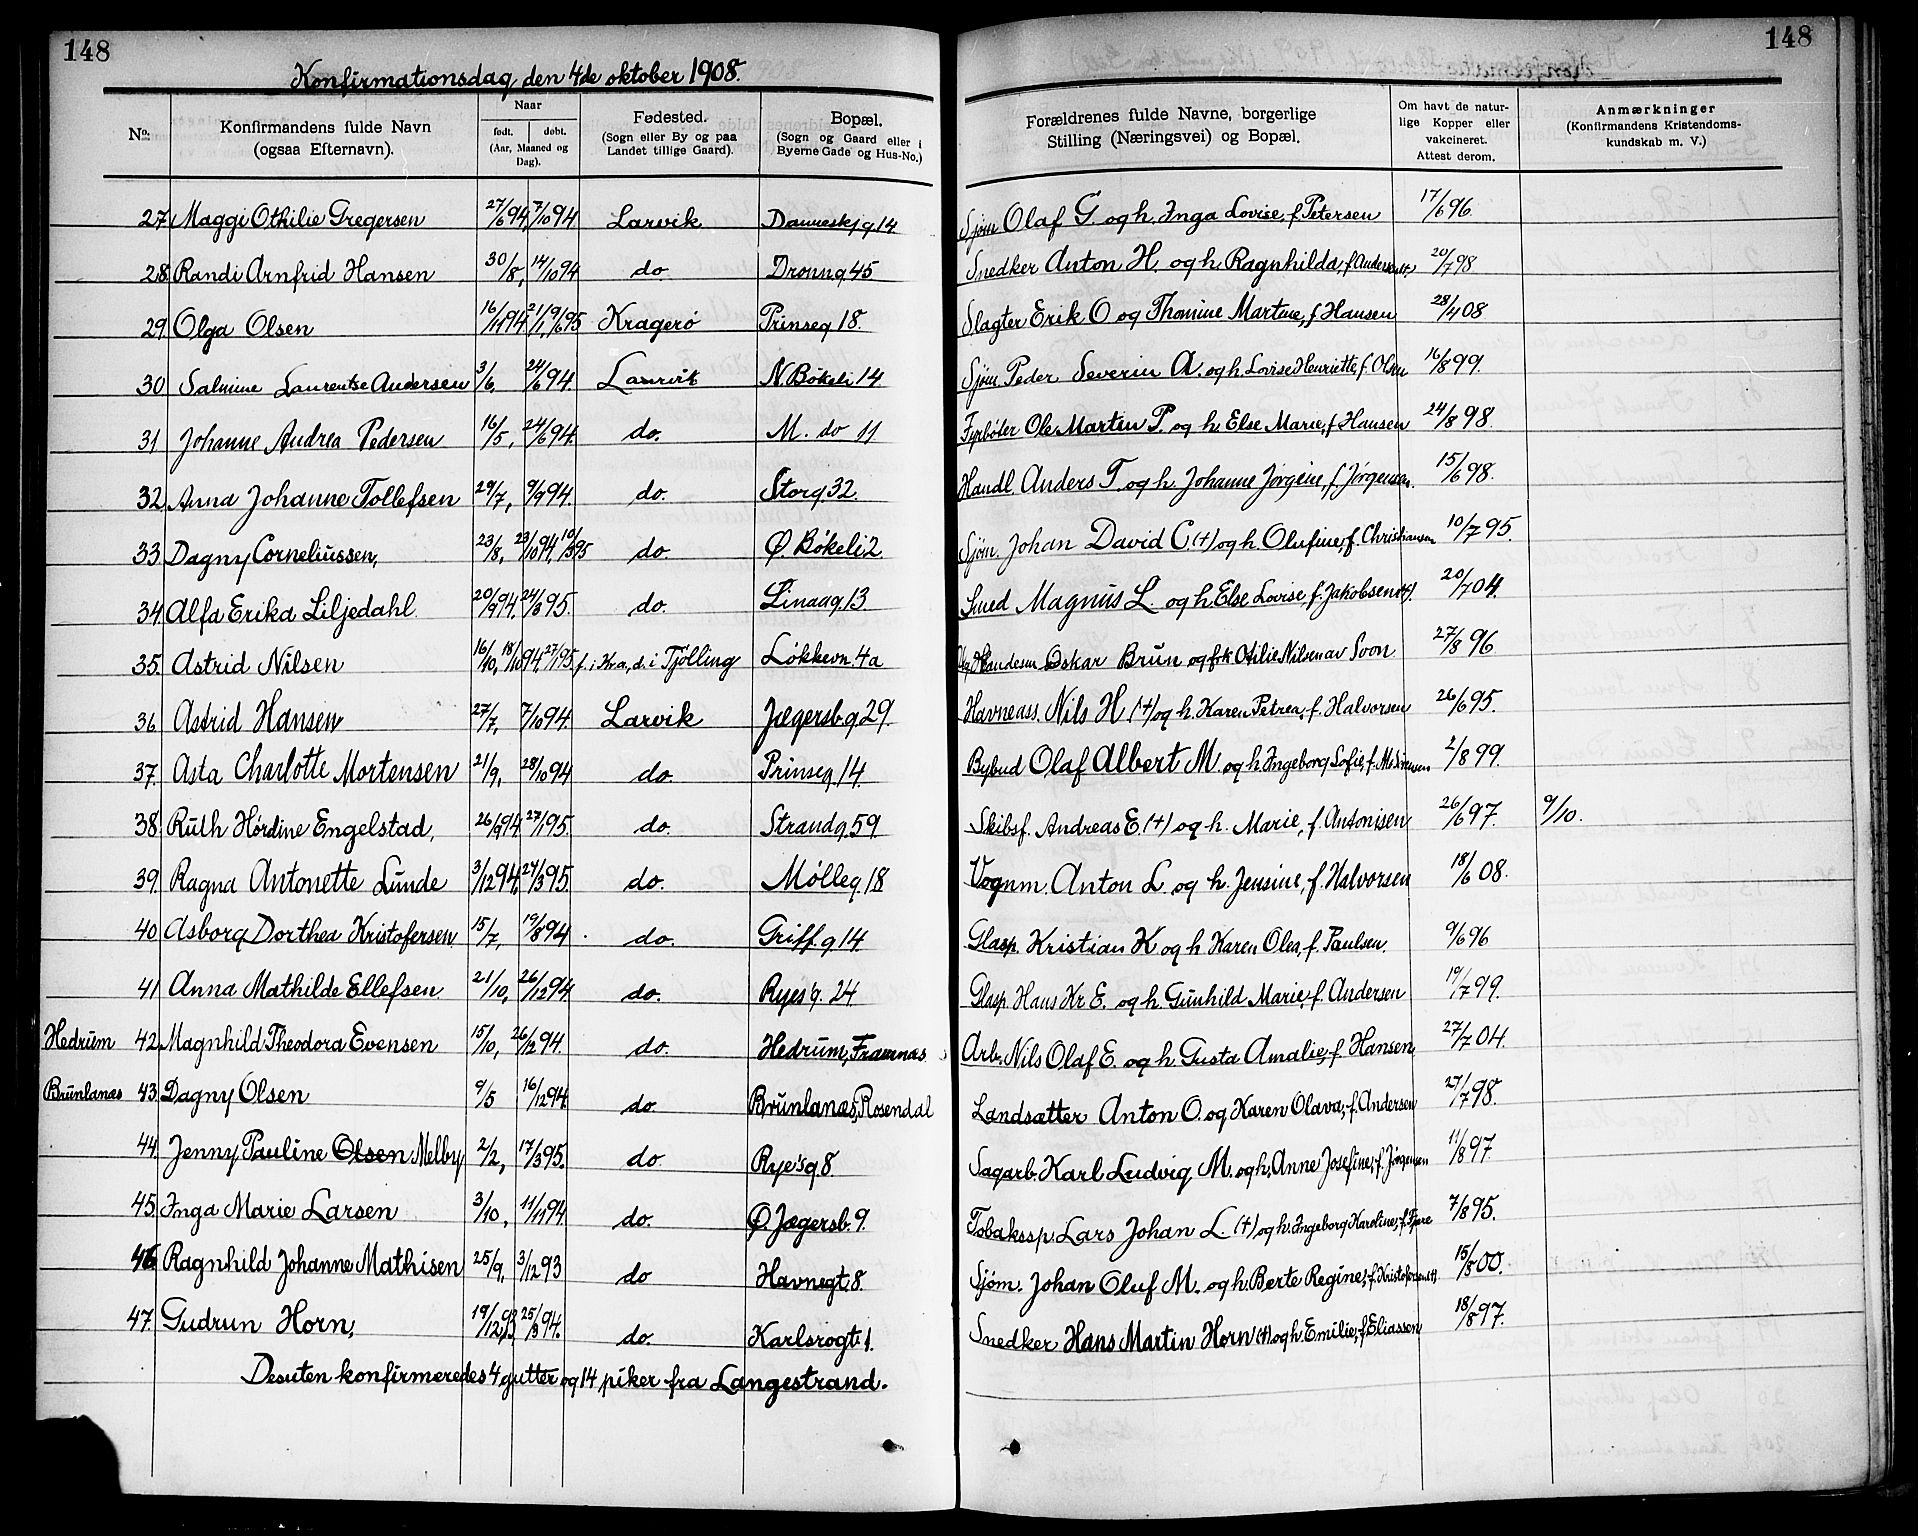 148
148
Konfirmationsdag den 4de oktober 1908.
No.
Konfirmandens fulde Navn (ogsaa Efternavn).
Naar født. døbt. (Aar, Maaned og Dag).
Fødested. (Sogn eller By og paa Landet tillige Gaard).
Bopæl. (Sogn og Gaard eller i Byerne Gade og Hus-No.)
Forældrenes fulde Navne, borgerlige Stilling (Næringsvei) og Bopæl.
Om havt de naturlige Kopper eller vakcineret. Attest derom.
Anmærkninger (Konfirmandens Kristendomskundskab m. V.)
27 Maggi Othilie Gregersen 27/6 94 7/10 94 Larvik Danneskj.g. 14 Sjøm Olaf G. og h. Inga Lovise, f. Petersen 17/6 96.
28 Randi Arnfrid Hansen 30/8, 14/10 94 do Dronng. 45 Snedker Anton H. og h. Ragnhilda, f. Andersen (+) 20/7 98
29. Olga Olsen 16/11 94 Kragerø Prinseg. 18. Slagter Erik O og Thomine Martine, f Hansen 28/4 08
30 Salmine Laurentse Andersen 3/6, 24/6 94. Larvik N Bøkeli 14 Sjøm. Peder Severin A. og h. Lovise Henriette, f. Olsen 16/8 99.
31 Johanne Andrea Pedersen 16/5, 24/6 94. do. M. do 11 Fyrbøter Ole Martin P. og h. Else Marie, f Hansen 24/8 98.
32 Anna Johanne Tollefsen 29/7, 9/9 94. do. Storg. 32. Handl. Anders T. og h. Johanne Jørgine, f. Jørgensen. 15/6 98.
33. Dagny Corneliussen, 23/8, 23/10 94, do Ø. Bøkeli 2. Sjøm. Johan David C. (+) og h. Olufine, f. Christiansen 10/7 95.
34 Alfa Erika Liljedahl. 20/9 94. 24/3 95. do. Linaag. 13 Smed Magnus L. og h. Else Lovise, f. Jakobsen (+). 20/7 04.
35. Astrid Nilsen 16/10, 18/10 94, 27/1 95. f. i Kra, d. i Tjølling Løkkevn. 4a Oskar Brun og frk Otilie Nilsen av Soon 27/8 96
36 Astrid Hansen 27/7, 7/10 94. Larvik Jægersb.g. 29. Havneass. Nils H (+) og h. Karen Petrea, f. Halvorsen 26/6 95.
37. Asta Charlotte Mortensen 21/9, 28/10 94 do. Prinseg. 14. Bybud Olaf Albert M og h. Ingeborg Sofie, f. 2/8 99.
38 Ruth Hørdine Engelstad, 26/9 94 27/1 95. do. Strandg. 59 Skibsf. Andreas E. (+) og h. Marie, f. Antonisen 26/6 97. 9/10.
39. Ragna Antonette Lunde 3/12 94. 24/3 95. do. Mølleg. 18 Vognm. Anton L. og h. Jensine, f. Halvorsen 18/6 08.
40 Asborg Dorthea Kristofersen 15/7, 19/8 94 do. Griff.g. 14. Glasp. Kristian K og h Karen Olea, f. Paulsen. 9/6 96
41 Anna Mathilde Ellefsen 21/10, 26/12 94 do. Ryes'g. 24 Glasp. Hans Kr E. og h. Gunhild Marie, f. Andersen 19/7 99.
Hedrum 42 Magnhild Theodora Evensen 15/10, 26/12 94. do. Hedrum, Framnas Arb. Nils Olaf E. og h. Gusta Amalie, f. Hansen 27/7 04.
Brunlanæs 43 Dagny Olsen 9/5 16/12 94. do. Brunlanæs, Rosendal Landsætter Anton O. og Karen Olava, f. Andersen 27/7 98.
44 Jenny Pauline Olsen Melby 2/2, 17/3 95. do. Rye'sg. 8 Sagarb. Karl Ludvig M. og h. Anne Josefine, f. Jørgensen 11/8 97.
45. Inga Marie Larsen 3/10, 11/11 94 do. Ø. Jægersb. 9. Tobakssp. Lars Johan L. (+) og h. Ingeborg Karoline, f. 7/8 95.
46 Ragnhild Johanne Mathisen 25/9, 3/12 93 do Havnegt. 8. Sjøm. Johan Oluf M. og h. Berte Regine, f. Kristofersen (+). 15/8 00.
47. Gudrun Horn, 19/12 93, 25/3 94. do. Karlsrogt. 1. Snedker Hans Martin Horn (+) og h. Emilie, f. Eliassen 18/8 97.
Desuten konfirmeredes 4 gutter og 14 piker fra Langestrand.